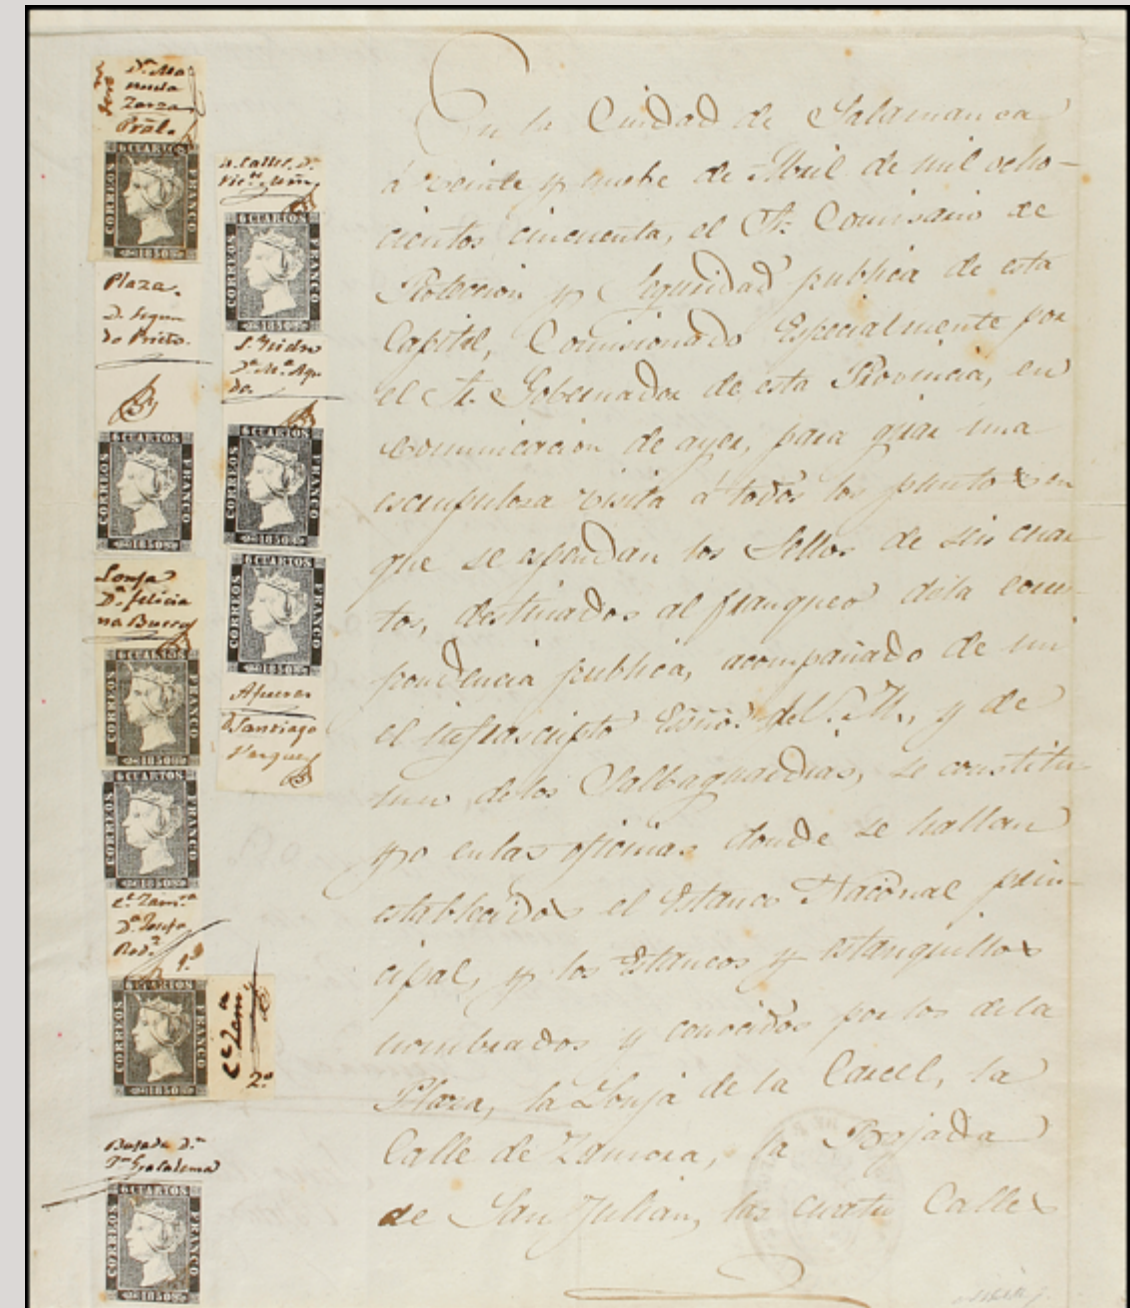 Dª. Ma
nuela
Zarza
Pral.
6 CUARTOS
CORREOS
FRANCO
1850
Plaza.
D. Segun
do Prieto.
6 CUARTOS
CORREOS
FRANCO
1850
Lonja
Dª. felicia
na Burros
6 CUARTOS
CORREOS
FRANCO
1850
6 CUARTOS
CORREOS
FRANCO
1850
Cª Zam.ª
Dª. Josefa
Rodz.
1º
6 CUARTOS
CORREOS
FRANCO
1850
Cª Zam.ª
2º
Bajada Dª
6 CUARTOS
CORREOS
FRANCO
4. Calles. Dª
6 CUARTOS
CORREOS
FRANCO
1850
S. Ysidro
Dª. Mª. Agu
da.
6 CUARTOS
CORREOS
FRANCO
1850
6 CUARTOS
CORREOS
FRANCO
1850
Afueras
D Santiago
Vazquez
En la Ciudad de Salamanca
á veinte y nuebe de Abril de mil ocho-
cientos cincuenta, el Sr. Comisario de
Proteccion y Seguridad publica de esta
Capital, Comisionado Especialmente por
el Sr. Gobernador de esta Provincia, en
comunicacion de ayer, para girar una
escrupulosa visita á todos los puntos en
que se espendan los Sellos de seis cuar
tos, destinados al franqueo dela corres-
pondencia publica, acompañado de mi
el infrascripto Essño. del N. M., y de
uno delos Salbaguardias, se constitu
yo enlas oficinas donde se hallan
establecidos el Estanco Nacional prin-
cipal, y los Estancos y estanquillos
nombrados y conocidos por los dela
Plaza, la Lonja de la Carcel, la
Calle de Zamora, la Bajada
de San Julian, las cuatro Calles